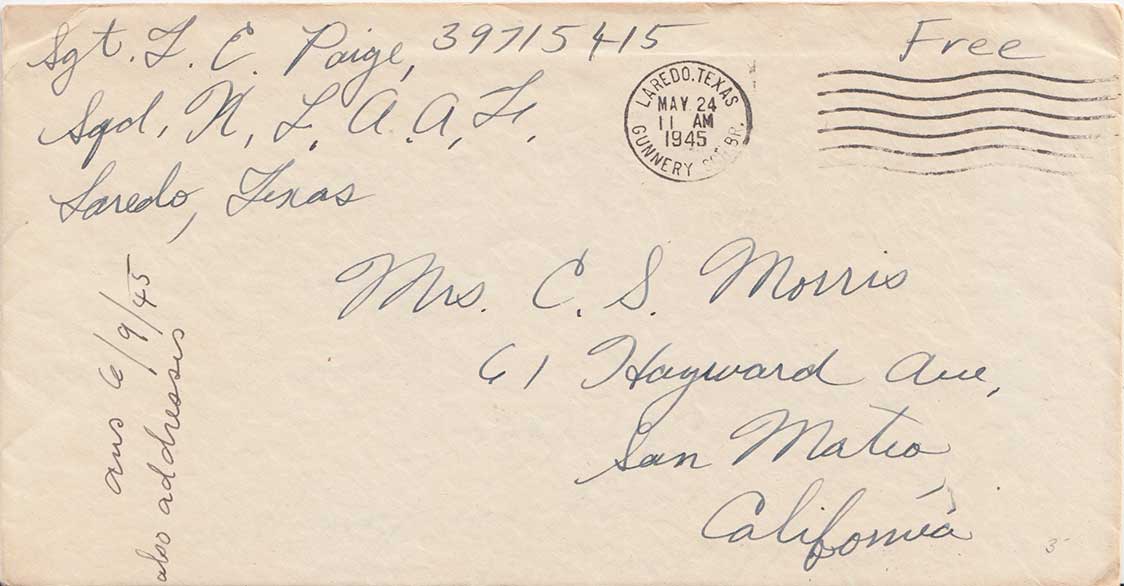 Sgt. L. E. Paige, 39715415
Sqd. N, L. A. A. F.
Laredo, Texas
Free
LAREDO, TEXAS
MAY 24
11 AM
1945
GUNNERY BR.
Mrs. C. S. Morris
61 Hayward Ave,
San Mateo
California
ans 6/9/45
also addresses
3